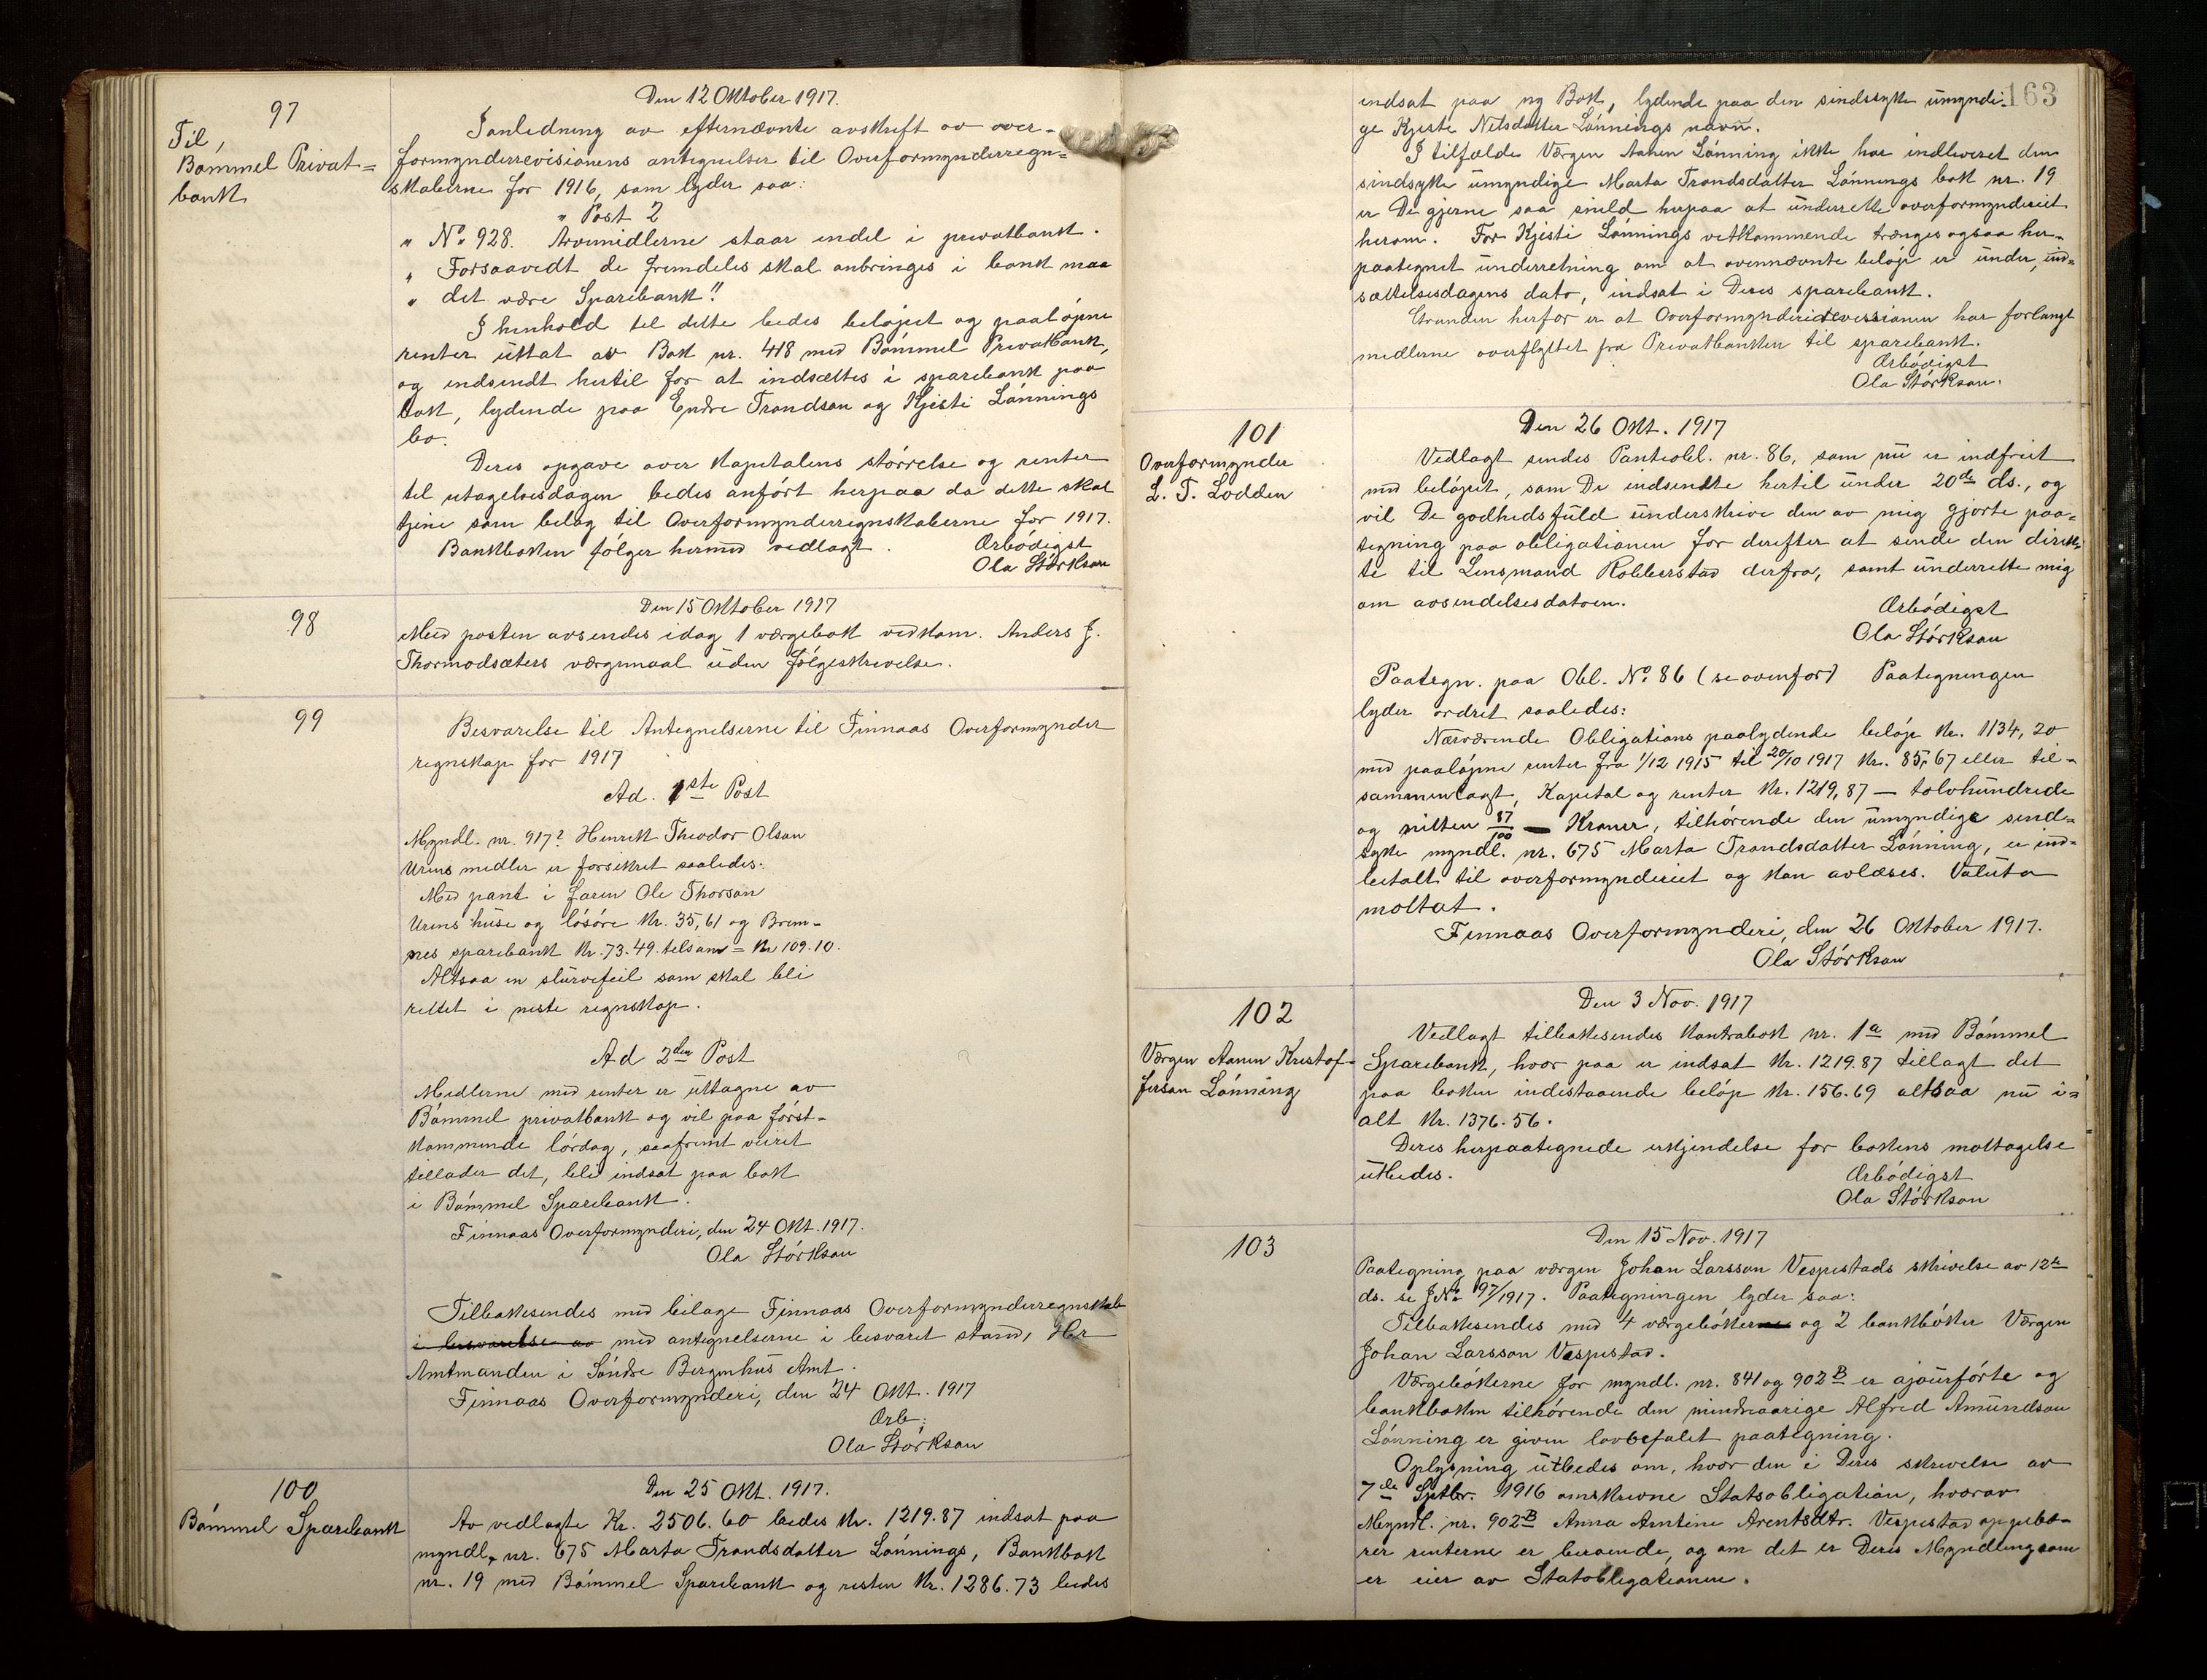 97
Til,
Bømmel Privat=
bank
Den 12 Oktober 1917.
I anledning av efternævnte avskrift av over-
formynderrevisionens antegnelser til Overformynderregn=
skaberne for 1916, som lyder saa:
" Post 2
" No. 928. Arvemidlerne staar endel i privatbank.
" Forsaavidt de fremdeles skal anbringes i bank maa
" det være Sparebank!!
I henhold til dette bedes beløpet og paaløpne
renter uttat av Bok nr. 418 med Bømmel Privatbank,
og indsendt hertil for at indsættes i sparebank paa
bok, lydende paa Endre Trondsen og Kjesti Lønnings
bo.
Deres opgave over kapitalens størrelse og renter
til utagelsesdagen bedes anført herpaa da dette skal
tjene som bilag til Overformynderregnskaberne for 1917.
Bankboken følger hermed vedlagt.
Ærbødigst
Ola Størkson
98
Den 15 Oktober 1917
Med posten avsendes idag 1 værgebok vedkom. Anders J.
Thormodsæters værgemaal uden følgeskrivelse.
99
Besvarelse til Antegnelserne til Finnaas Overformynder
regnskap for 1917
Ad. 1ste Post
Myndl. nr. 917? Henrik Theodor Olson
Urens midler er forsikret saaledes:
Med pant i faren Ole Thorson
Urens huse og løsøre Kr. 35,61 og Brem-
nes sparebank Kr. 73.49. tilsam = Kr 109.10.
Altsaa en skrivefeil som skal bli
rettet i neste regnskap.
Ad 2den Post
Midlerne med renter er uttagne av
Bømmel privatbank og vil paa først-
kommende lørdag, saafremt veiret
tillader det, bli indsat paa bok
i Bømmel Sparebank.
Finnaas Overformynderi, den 24 Okt. 1917.
Ola Størkson
Tilbakesendes med bilage Finnaas Overformynderregnskab
i besvarelse av med antegnelserne i besvaret stand, Hr
Amtmanden i Søndre Bergenhus Amt.
Finnaas Overformynderi, den 24 Okt. 1917
Ærb:
Ola Størkson
100
Bømmel Sparebank
Den 25 Okt. 1917.
Av vedlagte Kr. 2506.60 bedes Kr. 1219.87 indsat paa
myndl. nr. 675 Marta Trondsdatter Lønnings, Bankbok
nr. 19 med Bømmel Sparebank og resten Kr. 1286.73 bedes
163
indsat paa ny Bok, lydende paa den sindssyke umyndi-
ge Kjeste Nelsdatter Lønnings navn.
I tilfælde Værgen Aanen Lønning ikke har indleveret den
sindsyke umyndige Marta Trondsdatter Lønnings bok nr. 19
er De gjerne saa snild herpaa at underrette overformynderiet
herom. For Kjesti Lønnings vetkommende trænges ogsaa her-
paategnet underretning om at ovennævnte beløp er under, ind=
sættelsesdagens dato, indsat i Deres sparebank.
Grunden herfor er at Overformynderirevisionen har forlangt
midlerne overflyttet fra Privatbanken til sparebank.
Ærbødigst
Ola Størkson.
101
Overformynder
L. T. Lodden
Den 26 Okt. 1917
Vedlagt sendes Panteobl. nr. 86, som nu er indfriet
med beløpet, som De indsendte hertil under 20de ds., og
vil De godhedsfuld underskrive den av mig gjorte paa=
tegning paa obligationen for derefter at sende den direk-
te til Lensmand Robberstad derfra, samt underrette mig
om avsendelsesdatoen.
Ærbødigst
Ola Størkson
Paategn. paa Obl. No. 86 (se ovenfor) Paategningen
lyder ordret saaledes:
Nærværende Obligations paalydende beløp Kr. 1134,20
med paaløpne renter fra 1/12 1915 til 20/10 1917 Kr. 85,67 eller til-
sammenlagt, Kapital og renter Kr. 1219,87 — tolvhundrede
og nitten 87/100 — Kroner, tilhørende den umyndige sind=
syke myndl. nr. 675 Marta Trondsdatter Lønning, er ind=
betalt til overformynderiet og kan avlæses. Valuta
mottat.
Finnaas Overformynderi, den 26 Oktober 1917.
Ola Størkson
102
Værgen Aanen Kristof-
fersen Lønning
Den 3 Nov. 1917
Vedlagt tilbakesendes Kontrabok nr. 1a med Bømmel
Sparebank, hvor paa er indsat Kr. 1219.87 tillagt det
paa boken indestaaende beløp Kr. 156.69 altsaa nu i=
alt Kr. 1376.56.
Deres herpaategnede erkjendelse for bokens mottagelse
utbedes.
Ærbødigst
Ola Størkson
103
Den 15 Nov. 1917
Paategning paa værgen Johan Larsson Vespestads skrivelse av 12te
ds. se J.No. 97/1917. Paategningen lyder saa:
Tilbakesendes med 4 værgebøkerne og 2 bankbøker Værgen
Johan Larsson Vespestad.
Værgebøkerne for myndl. nr. 841 og 902B er ajourførte og
bankboken tilhørende den mindreaarige Alfred Amundsen
Lønning er given lovbefalet paategning.
Oplysning utbedes om, hvor den i Deres skrivelse av
7de Septbr. 1916 omskrevne Statsobligation, hvorav
Myndl. nr. 902B Anna Amtine Arentsdtr. Vespestad oppebæ-
rer renterne er beroende, og om det er Deres Myndling som
er eier av Statobligationen.